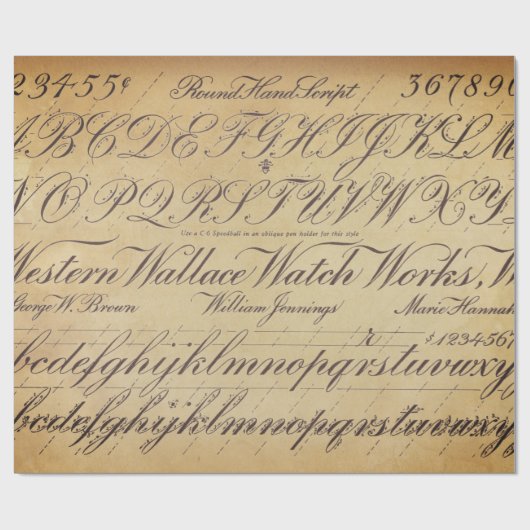 23455¢ Round Hand Script 367890
ABCDEFGHIJKLM
NOPQRSTUVWXY
Use a C-6 Speedball in an oblique pen holder for this style
Western Wallace Watch Works, W
George W. Brown William Jennings Marie Hannah
r $1234567
bcdefghijklmnopqrstuvwxy
bcdefghijklmnopqrstuvwxy